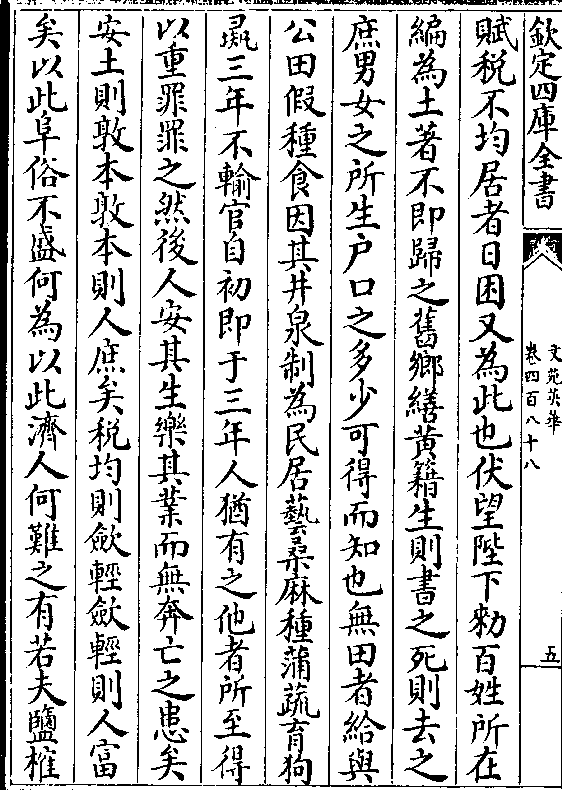 欽定四庫全書
文苑英華
卷四百八十八
五
賦税不均居者日困又為此也伏望陛下勑百姓所在
編為土著不即歸之舊鄉繕黄籍生則書之死則去之
庶男女之所生户口之多少可得而知也無田者給與
公田假種食因其井泉制為民居藝桑麻種蒲蔬育狗
彘三年不輸官自初即于三年人猶有之他者所至得
以重罪罪之然後人安其生樂其業而無奔亡之患矣
安土則敦本敦本則人庶矣税均則歛輕歛輕則人富
矣以此阜俗不盛何為以此濟人何難之有若夫鹽榷